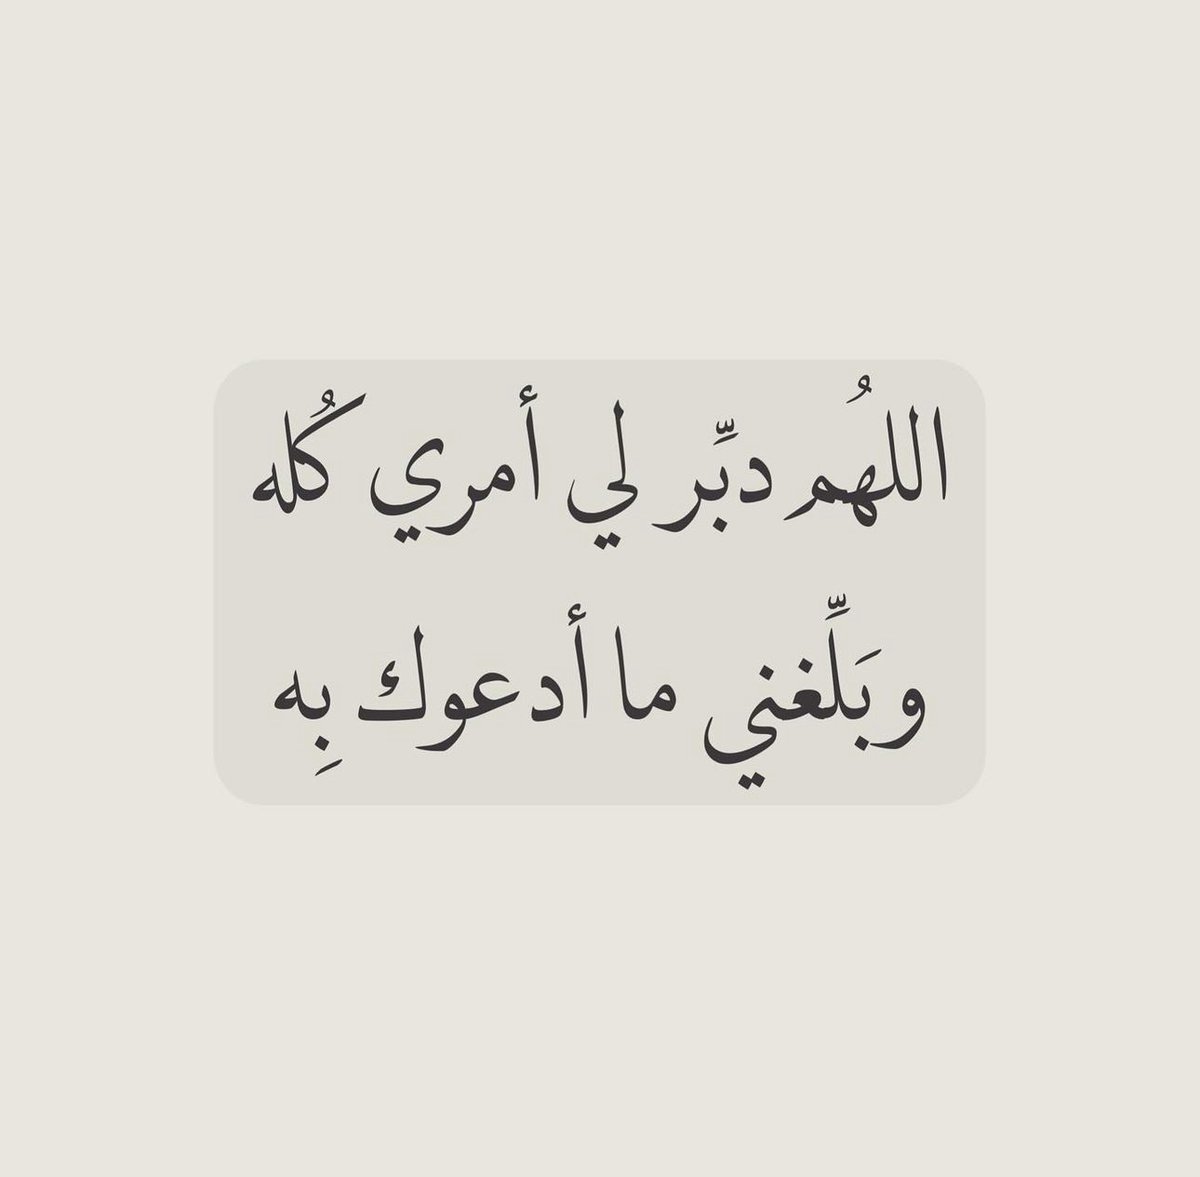 اللهُم دبِّر لي أمري كُله
وبَلِّغني ما أدعوك بِه